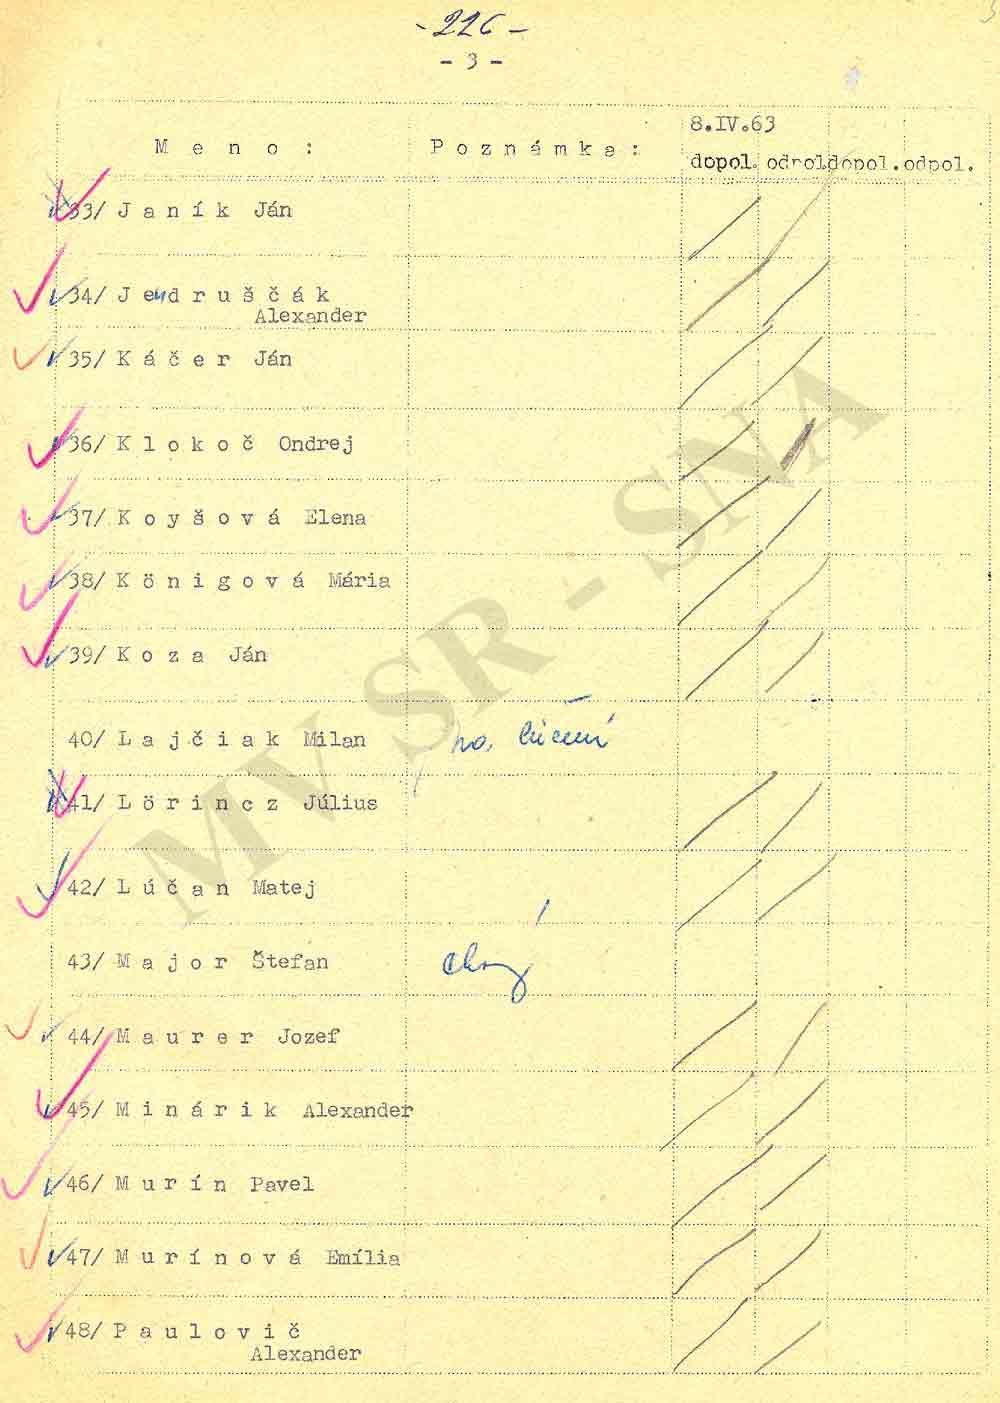 - 226 -
- 3 -
8.IV.63
M e n o : P o z n á m k a :
dopol. odpol. dopol. odpol.
33/ J a n í k Ján
34/ J e n d r u š č á k
Alexander
35/ K á č e r Ján
36/ K l o k o č Ondrej
37/ K o y š o v á Elena
38/ K ö n i g o v á Mária
39/ K o z a Ján
40/ L a j č i a k Milan
41/ L ö r i n c z Július
42/ L ú č a n Matej
43/ M a j o r Štefan
44/ M a u r e r Jozef
45/ M i n á r i k Alexander
46/ M u r í n Pavel
47/ M u r í n o v á Emília
48/ P a u l o v i č
Alexander
MV SR - SNA